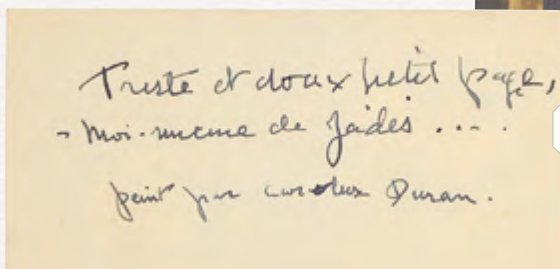 Triste et doux petit page,
- Moi-même de Jadis ....
peint par Carolus Duran.